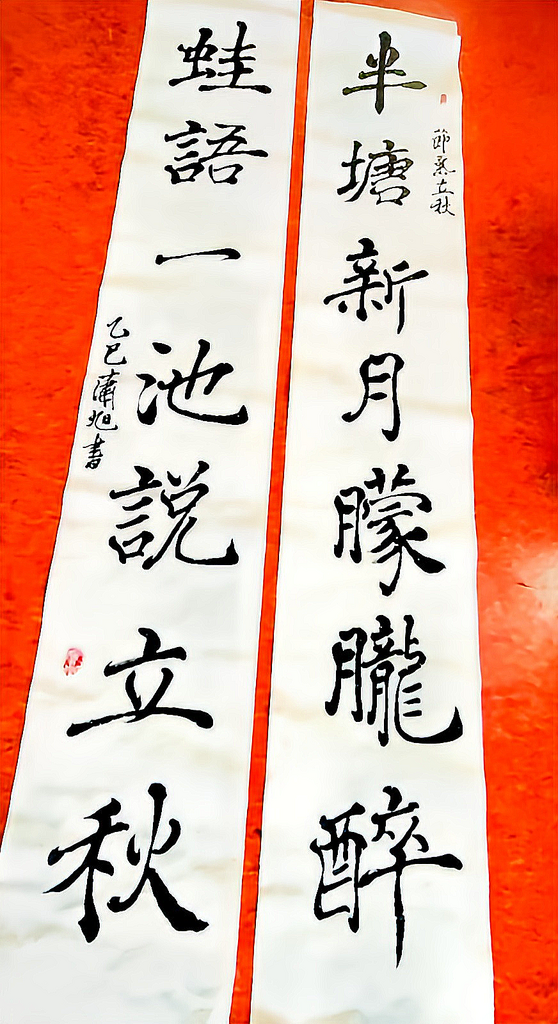 節氣立秋
半塘新月朦朧醉
蛙語一池説立秋
乙巳蕭旭書